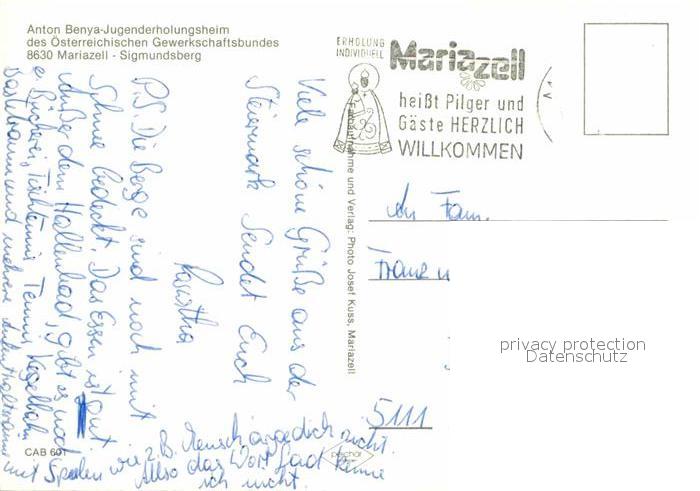 Anton Benya-Jugenderholungsheim
des Österreichischen Gewerkschaftsbundes
8630 Mariazell - Sigmundsberg
ERHOLUNG
INDIVIDUELL
Mariazell
heißt Pilger und
Gäste HERZLICH
WILLKOMMEN
Viele schöne Grüße aus der
Steiermark Sendet Euch
P.S. Die Berge sind noch mit
Schnee bedeckt. Das Essen ist gut
Außer dem Hallenbad, gibt es noch
e Bücherei, Tischtennis, Tennis, Kegelbahn
Bastelraum und mehrere Aufenthaltsräume
mit Spielen wie z.B. Mensch ärgedich nicht.
Allso das Wort fad kenne
ich nicht.
Farbaufnahme und Verlag: Photo Josef Kuss, Mariazell
An Fam.
Franz
5111
CAB 601
privacy protection
Datenschutz